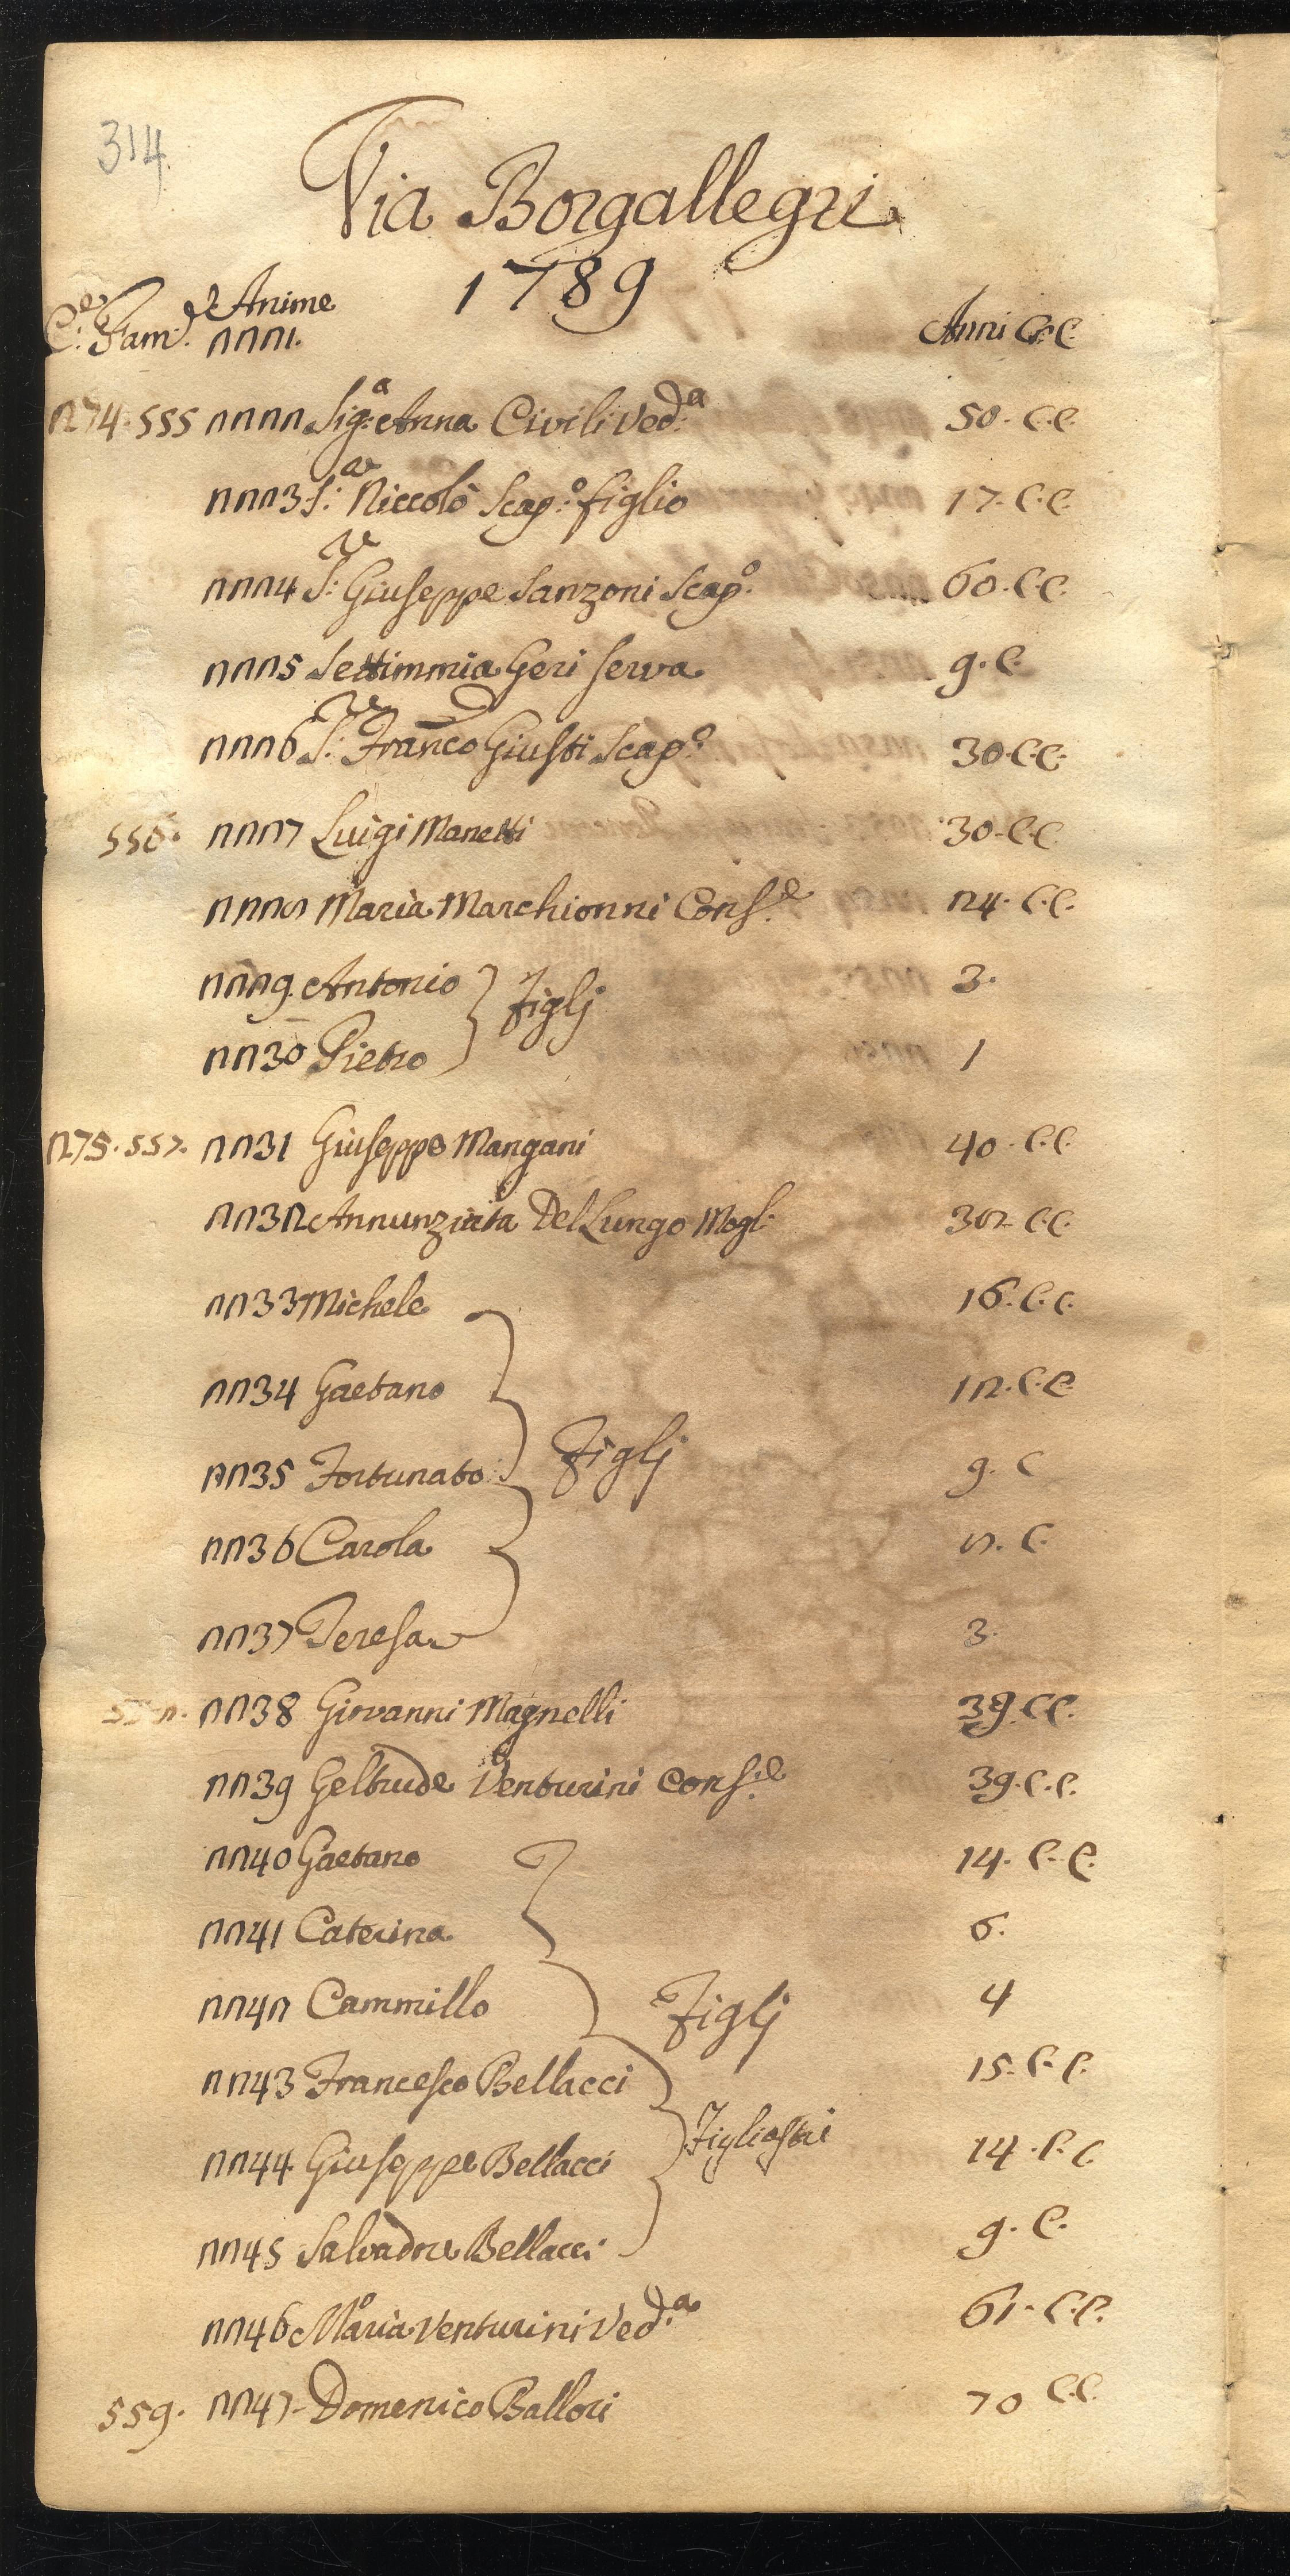 314
Via Borgallegri
1789
C.e Fam.e Anime
2221.
Anni C.C.
274. 555 2222 Sig.a Anna Civili Ved.a 50. C.C.
2223 S.r Niccolò Scap.o figlio 17. C.C.
2224 S.r Giuseppe Sanzoni Scap.o 60. C.C.
2225 Settimmia Geri Serva 9. C.
2226 S.r Franco Giusti Scap.o 30. C.C.
556. 2227 Luigi Manetti 30. C.C.
2228 Maria Marchionni Cons.e 24. C.C.
2229. Antonio 3.
Figlj
2230 Pietro 1
275. 557. 2231 Giuseppe Mangani 40. C.C.
2232 Annunziata Del Lungo Mogl: 32. C.C.
2233 Michele 16. C.C.
2234 Gaetano 12. C.C.
Figlj
2235 Fortunato 9. C
2236 Carola 8. C.
2237 Teresa 3.
558. 2238 Giovanni Magnelli 39. C.C.
2239 Geltrude Venturini Cons.e 39. C.C.
2240 Gaetano 14. C.C.
2241 Caterina 6.
2242 Cammillo 4
Figlj
2243 Francesco Bellacci 15. C.C.
Figliastri
2244 Giuseppe Bellacci 14. C.C
2245 Salvadore Bellacci 9. C.
2246 Maria Venturini Ved.a 61. C.C.
559. 2247 Domenico Ballori 70 C.C.